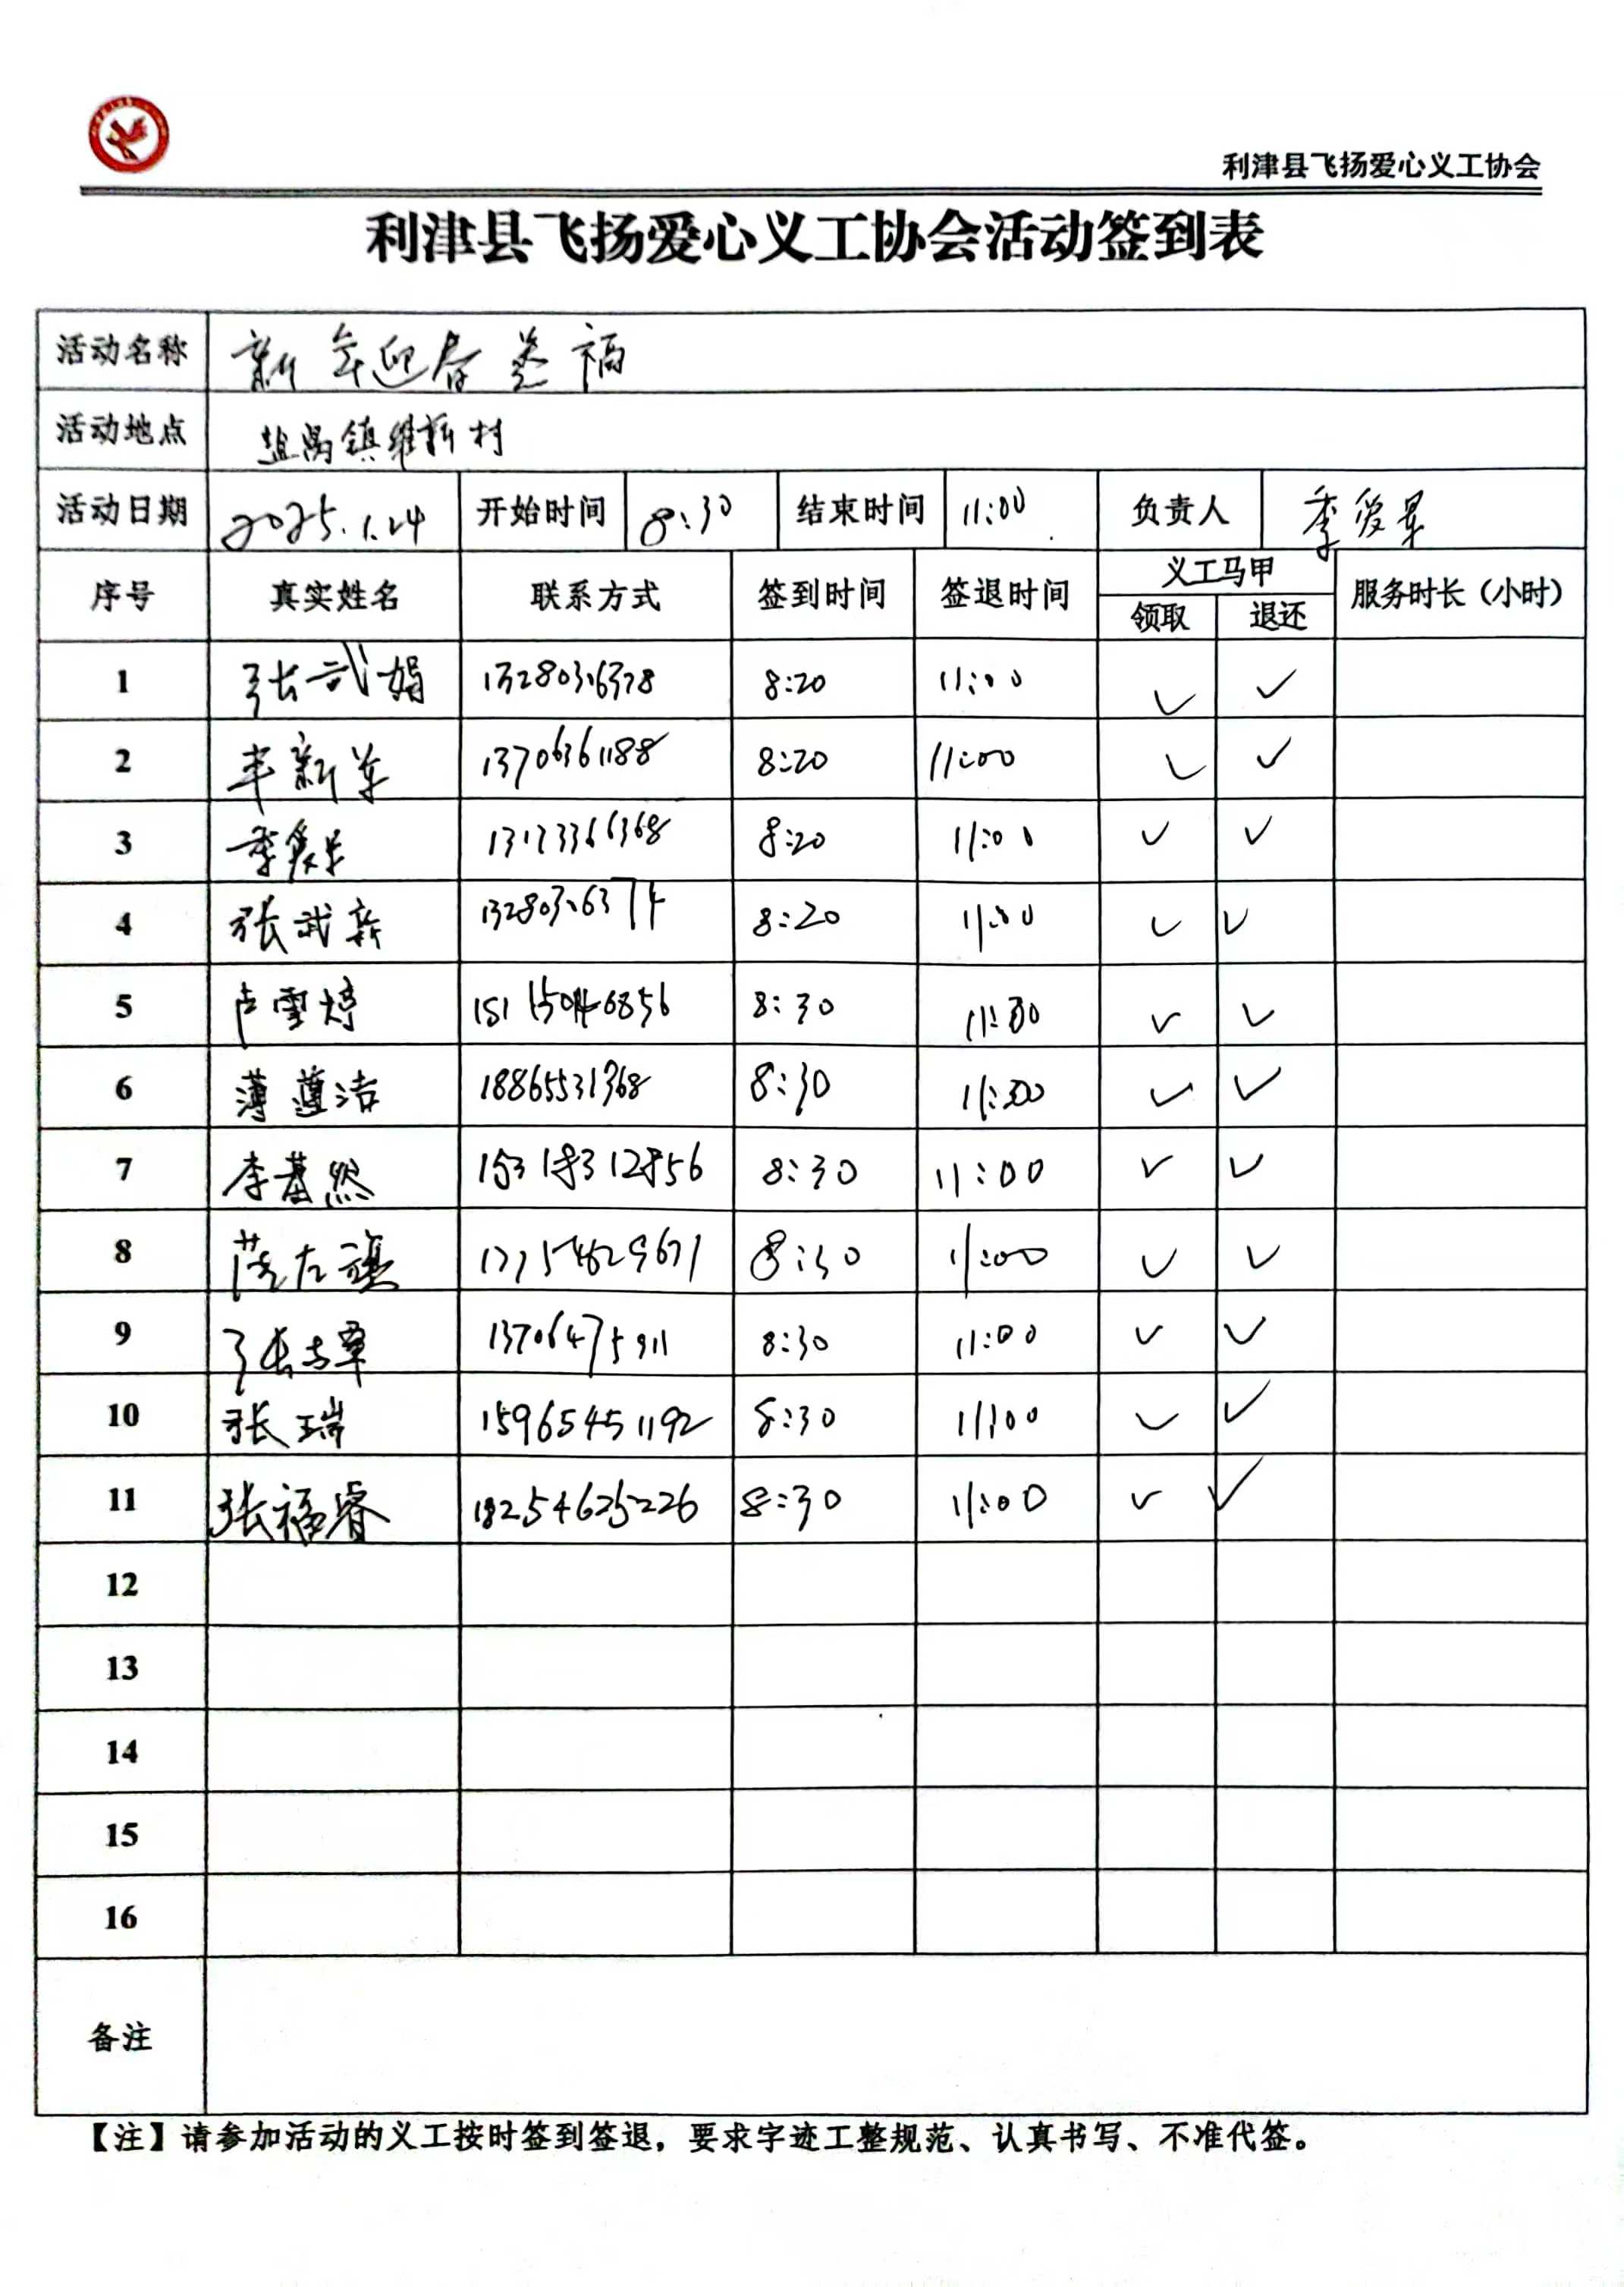 利津县飞扬爱心义工协会
利津县飞扬爱心义工协会活动签到表
活动名称 新年迎春送福
活动地点 盐窝镇维新村
活动日期 2025.1.24 开始时间 8:30 结束时间 11:00 负责人 季爱军
序号 真实姓名 联系方式 签到时间 签退时间 义工马甲 服务时长（小时）
领取 退还
1 张武娟 13280326378 8:20 11:00 ✓ ✓
2 新军 13706361188 8:20 11:00 ✓ ✓
3 季爱军 8:20 11:00 ✓ ✓
4 张武新 13280326374 8:20 11:00 ✓ ✓
5 卢雪婷 8:30 11:00 ✓ ✓
6 薄蕴洁 18865531368 8:30 11:00 ✓ ✓
7 李 然 8:30 11:00 ✓ ✓
8 8:30 11:00 ✓ ✓
9 张志军 13706475911 8:30 11:00 ✓ ✓
10 张瑞 15965451192 8:30 11:00 ✓ ✓
11 张福睿 18254625226 8:30 11:00 ✓ ✓
12
13
14
15
16
备注
【注】请参加活动的义工按时签到签退，要求字迹工整规范、认真书写、不准代签。